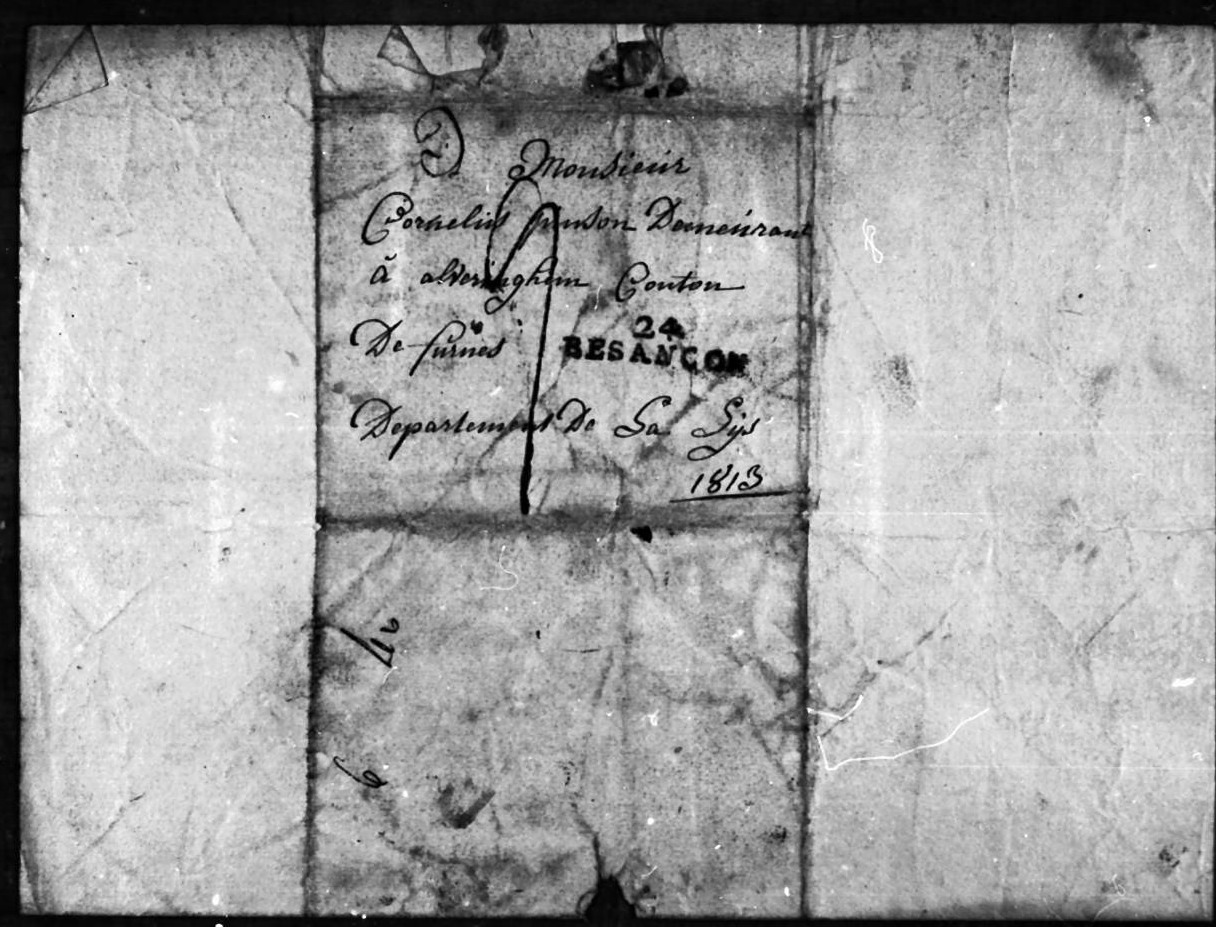 Monsieur
Cornelius Demeurant
à alveringhem Conton
De furnes
24
BESANÇON
Departement De La Lys
1813